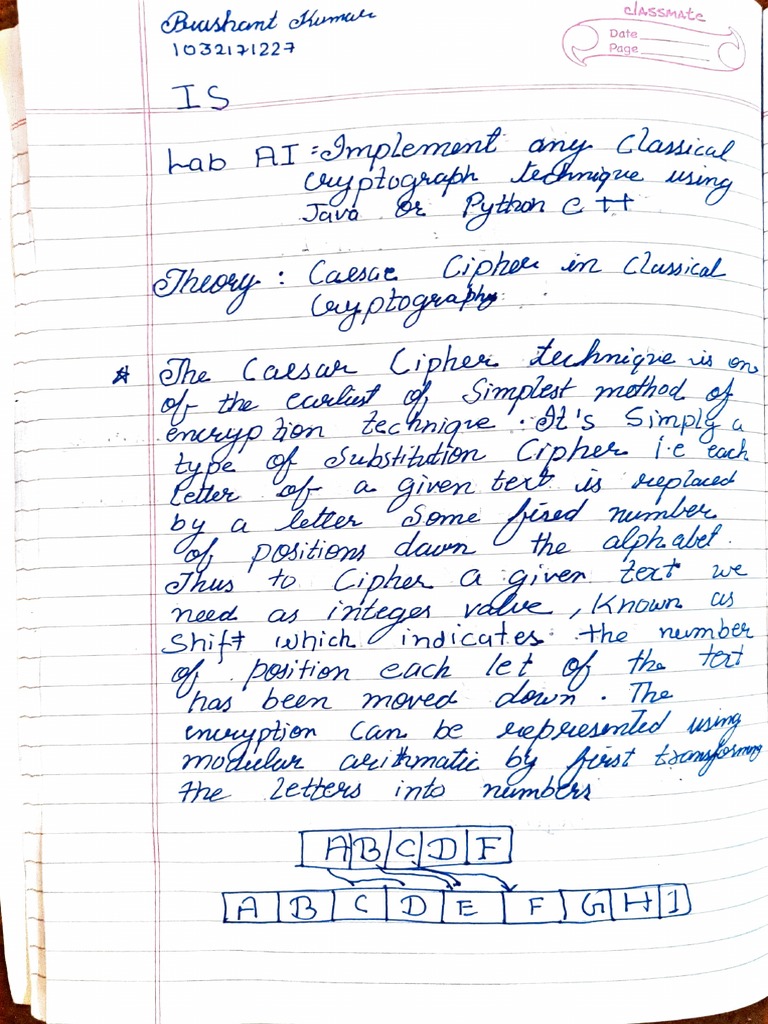 Prashant Kumar
1032171227
classmate
Date
Page
IS
Lab A1 : Implement any Classical
Cryptograph technique using
Java or Python C++
Theory : Caesae Cipher in Classical
Cryptography
* The Caesar Cipher technique is on
of the earliest of Simplest method of
encryption technique. It's Simply a
type of substitution Cipher i.e each
letter of a given text is replaced
by a letter Some fixed number
of positions down the alphabet.
Thus to Cipher a given text we
need as integes value, Known as
Shift which indicates the number
of position each let of the text
has been moved down. The
encryption Can be represented using
modular arithmatic by first transforming
the letters into numbers
A B C D F
A B C D E F G H I